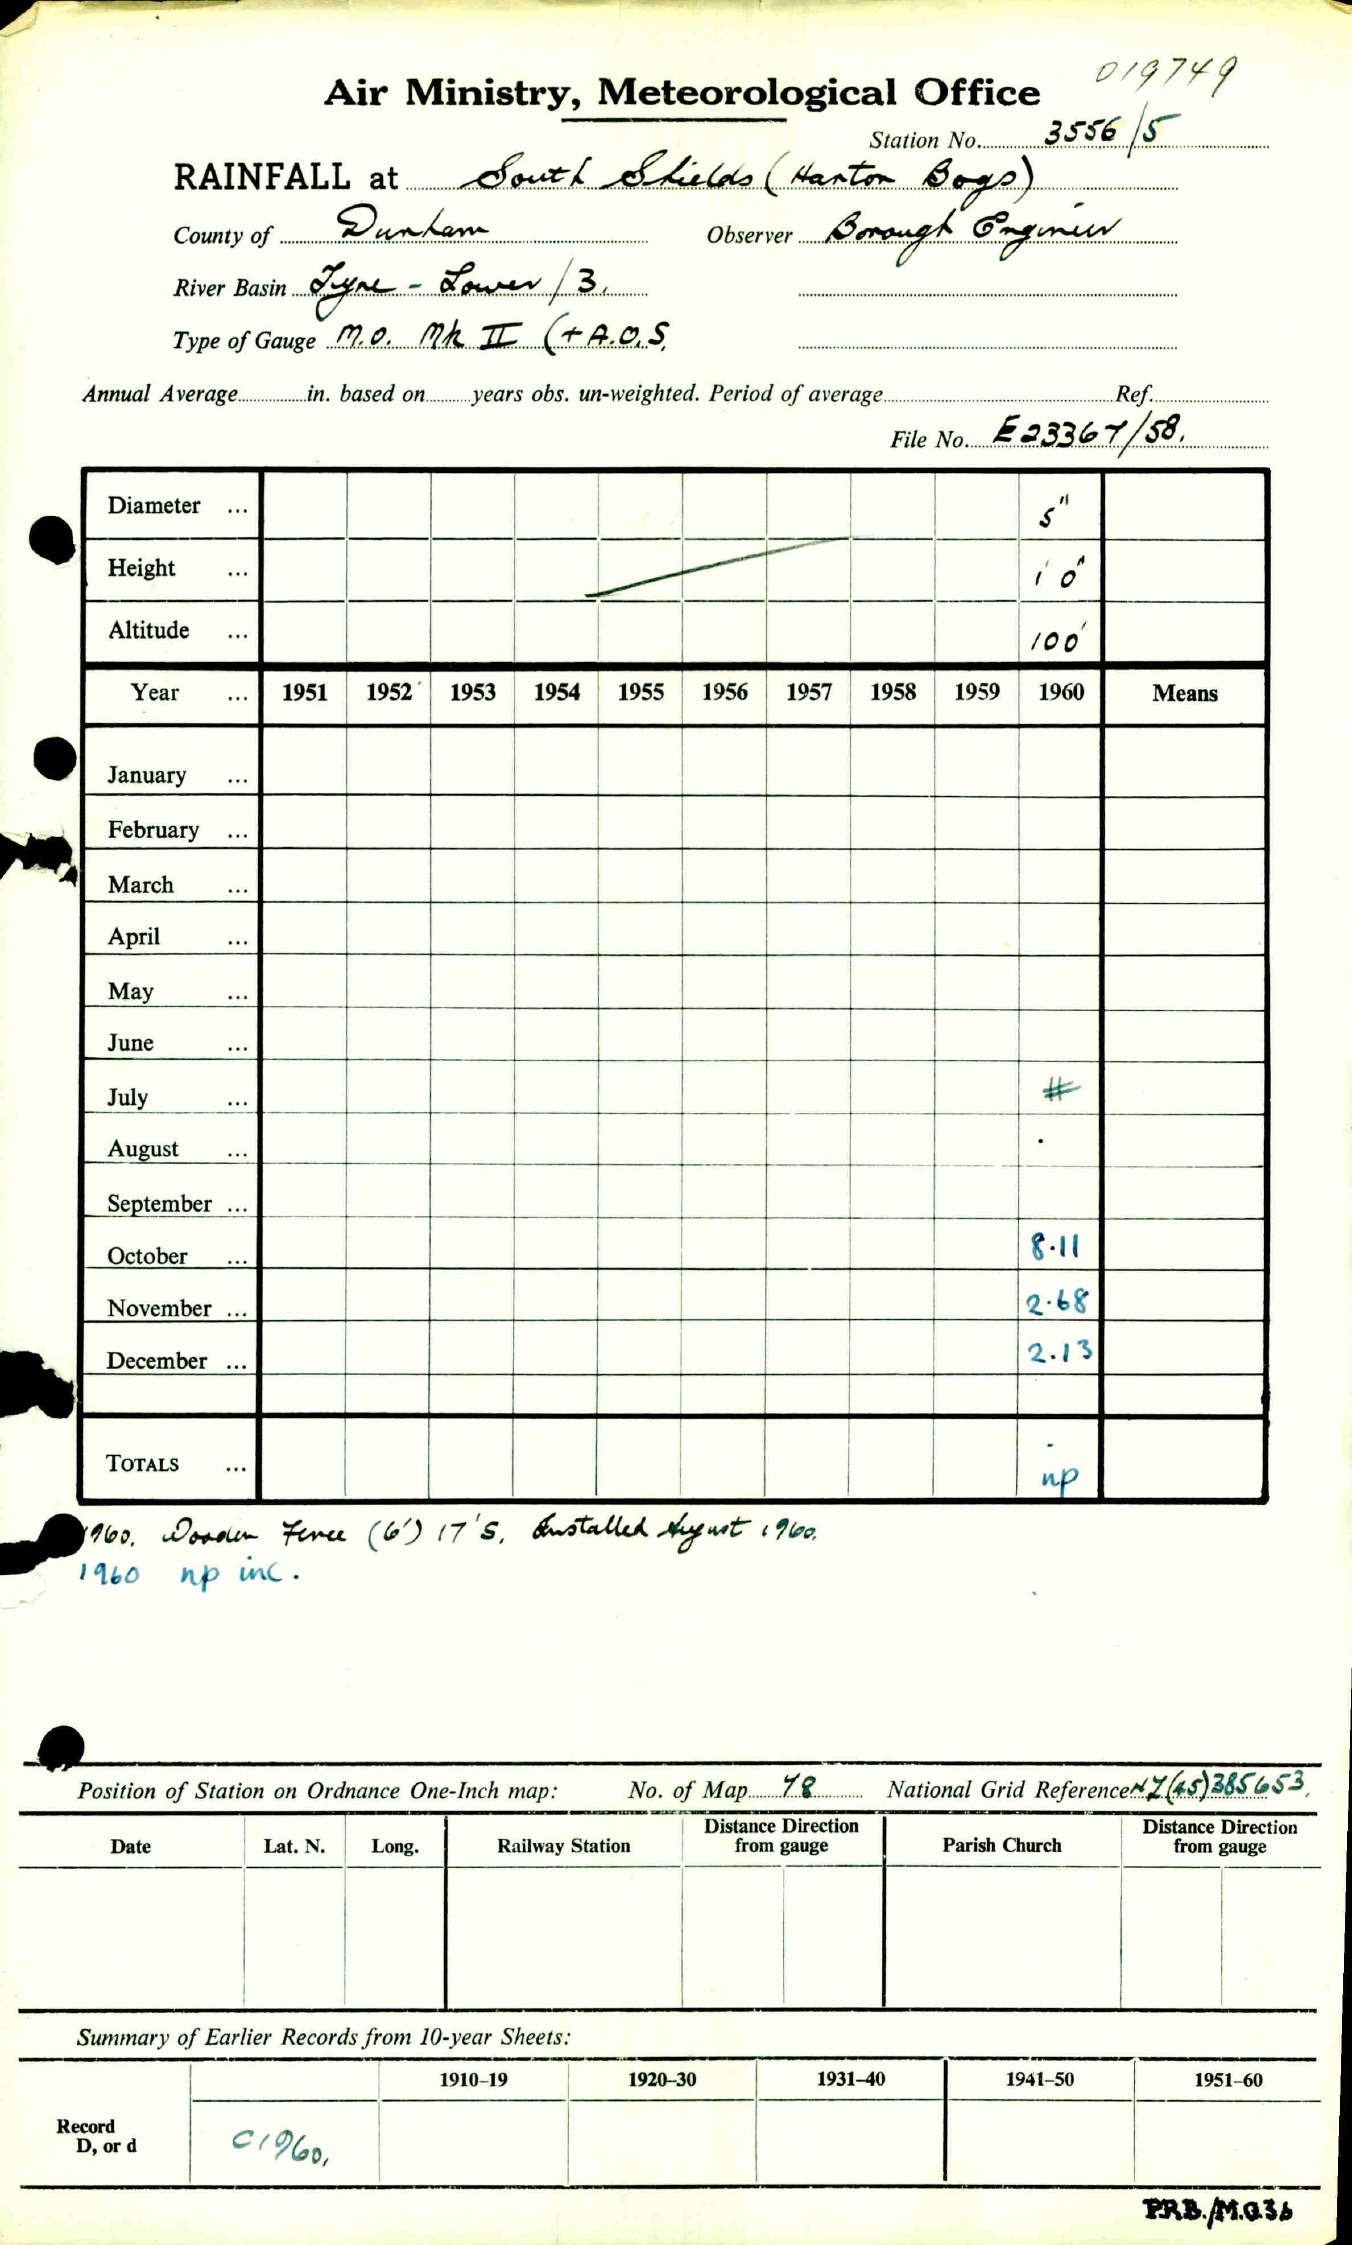 019749
Air Ministry, Meteorological Office
Station No. 3556/5
RAINFALL at South Shields (Harton Bogs)
County of Durham Observer Borough Engineer
River Basin Tyne - Lower /3.
Type of Gauge M.O. Mk II (+ A.O.S.
Annual Average in. based on years obs. un-weighted. Period of average Ref.
File No. E23367/58.
Diameter ... 5"
Height ... 1' 0"
Altitude ... 100'
Year ... 1951 1952 1953 1954 1955 1956 1957 1958 1959 1960 Means
January ...
February ...
March ...
April ...
May ...
June ...
July ... #
August ... .
September ...
October ... 8.11
November ... 2.68
December ... 2.13
TOTALS ... - np
1960. Wooden Fence (6') 17'S. Installed August 1960.
1960 np inc.
Position of Station on Ordnance One-Inch map: No. of Map 78 National Grid Reference NZ(45)385653.
Date Lat. N. Long. Railway Station Distance Direction from gauge Parish Church Distance Direction from gauge
Summary of Earlier Records from 10-year Sheets:
1910–19 1920–30 1931–40 1941–50 1951–60
Record D, or d C1960.
P.R.B./M.O.36